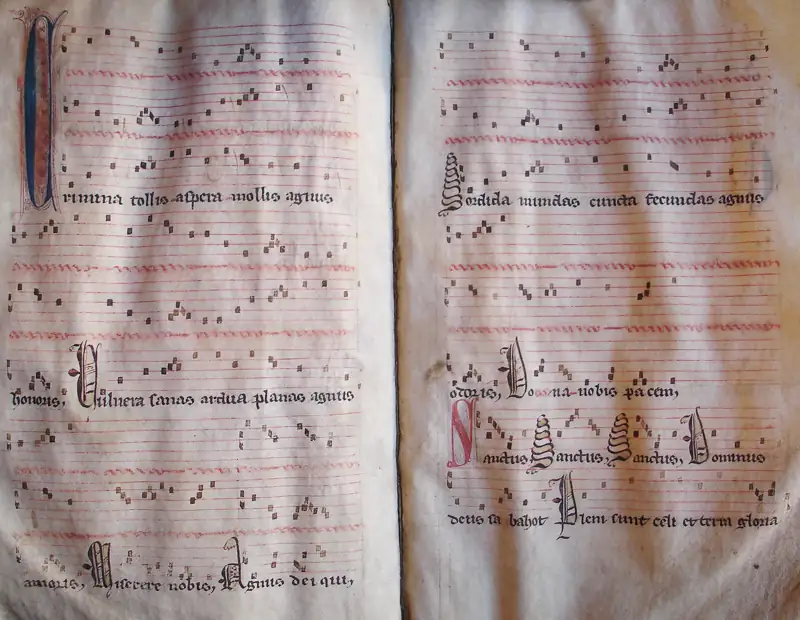 Crimina tollis aspera mollis agnus
honoris, Vulnera sanas ardua planas agnus
amoris, Miserere nobis, Agnus dei qui,
Sordida mundas cuncta fecundas agnus
odoris, Dona nobis pacem,
Sanctus, Sanctus, Sanctus, Dominus
deus sa bahot Pleni sunt celi et terra gloria